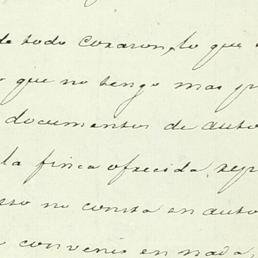 de todo corazon, lo que
que no tengo mas
documentos de auto
la finca ofrecida, rep
eso no consta en auto
convenir en nada,